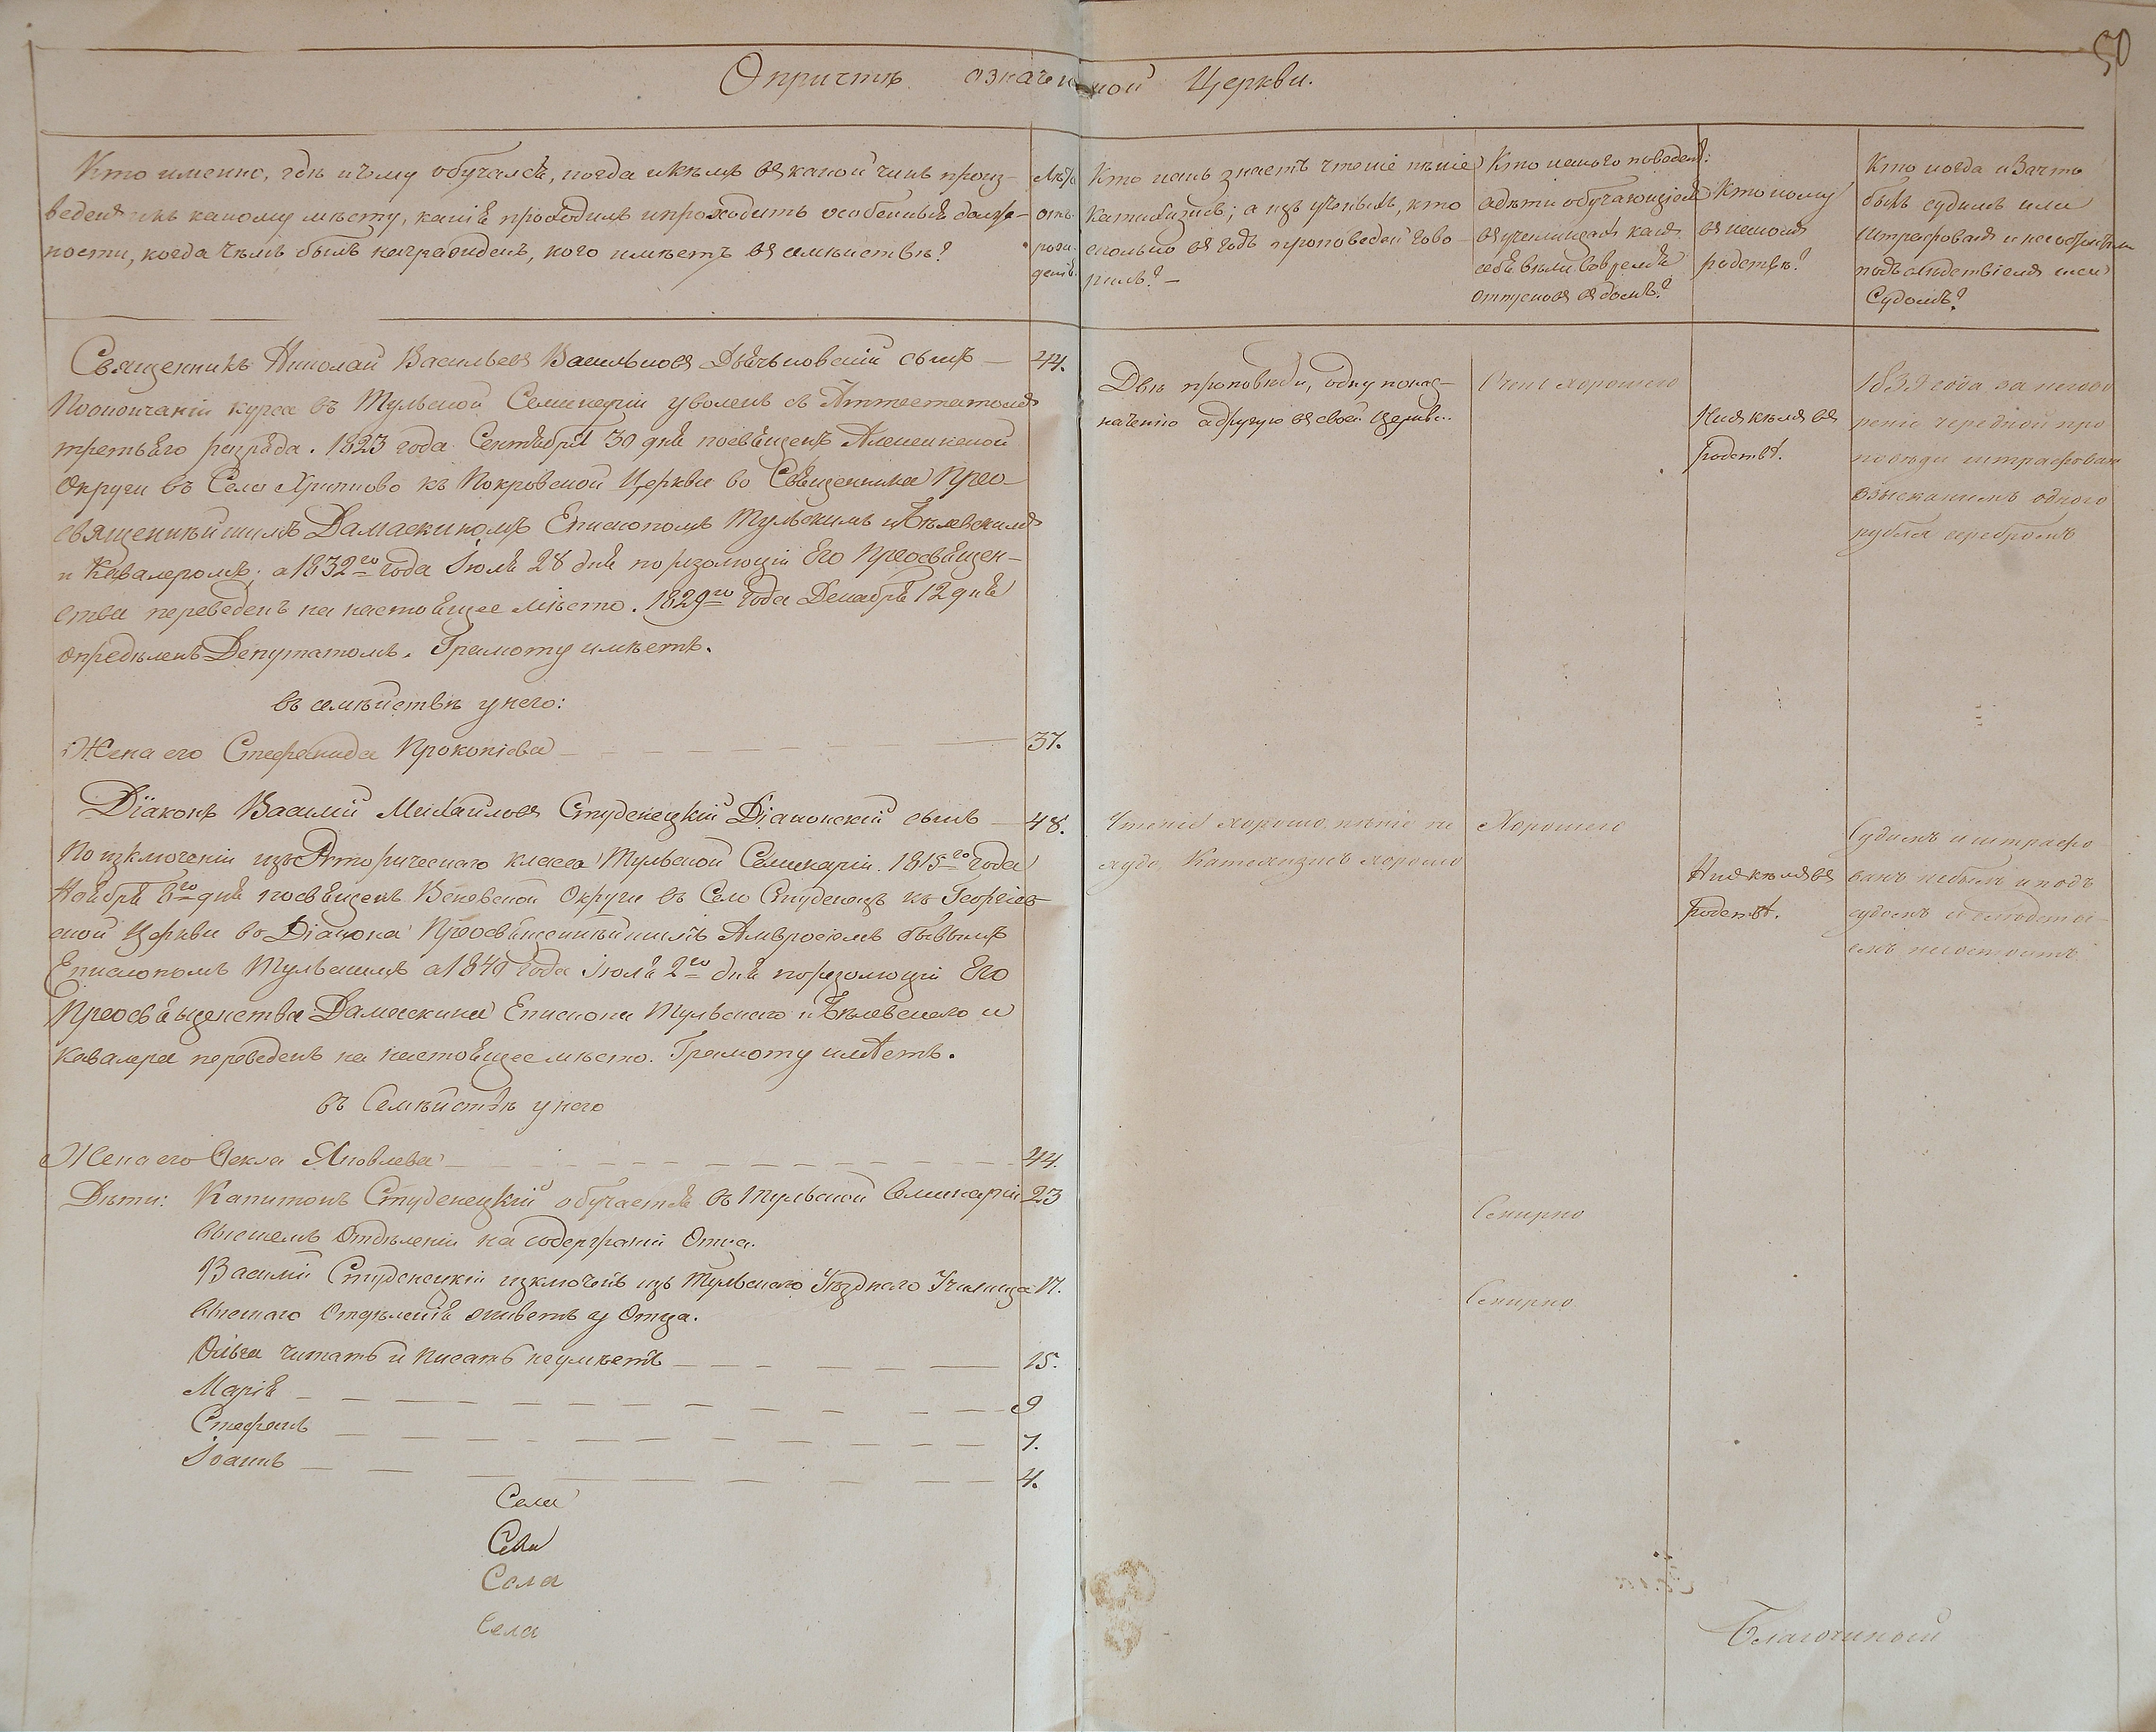 50
О причтѣ означенной Церкви.
Кто именно, гдѣ и чему обучался, когда и кѣмъ въ какой чинъ произ-
веденъ и къ какому мѣсту, какія проходилъ и проходитъ особенныя долж-
ности, когда чѣмъ былъ награжденъ, кого имѣетъ въ семѣйствѣ?
Лѣта
отъ
рож-
денія.
Кто какъ знаетъ чтеніе пѣніе
Катихизисъ; а изъ ученыхъ, кто
сколько въ годъ проповедей гово-
рилъ? —
Кто какого поведенія:
а дѣти обучающіеся
въ училищахъ какъ
себя вели во время
отпусковъ въ домъ?
Кто кому
въ какомъ
родствѣ?
Кто когда и за что
былъ судимъ или
Штрафованъ и не состоитъ ли
подъ слѣдствіемъ или
Судомъ?
Священникъ Николай Васильевъ Дьячковскій сынъ — 44.
По окончаніи курса въ Тульской Семинаріи уволенъ съ Аттестатомъ
третьяго разряда. 1823 года Сентября 30 дня посвященъ Алексинской
Округи въ Село Хрипково къ Покровской Церкви во Священника Прео-
священнѣйшимъ Дамаскиномъ Епископомъ Тульскимъ и Бѣлевскимъ
и Кавалеромъ; а 1832го года Іюля 28 дня по резолюціи Его Преосвящен-
ства переведенъ на настоящее мѣсто. 1829го года Декабря 12 дня
опредѣленъ Депутатомъ. Грамоту имѣетъ.
Двѣ проповѣди, одну по наз-
наченію а другую въ своей церкви.
Очень хорошаго
Ни съ кѣмъ въ
родствѣ.
1839 года за негово
реніе чередной про
повѣди штрафован
взысканіемъ одного
рубля серебромъ
въ семѣйствѣ у него:
Жена его Стефанида Прокопіева — 37.
Діаконъ Василій Михайловъ Студенецкій Діаконскій сынъ — 48.
По изключеніи изъ Риторическаго класса Тульской Семинаріи. 1815го года
Ноября 6го дня посвященъ Веневской Округи въ Село Студенецъ къ Георгіев-
ской Церкви во Діакона Преосвященнѣйшимъ Амвросіемъ бывшимъ
Епископомъ Тульскимъ а 1840 года Іюля 2го дня по резолюціи Его
Преосвященства Дамаскина Епископа Тульскаго и Бѣлевскаго и
Кавалера переведенъ на настоящее мѣсто. Грамоту имѣетъ.
Чтеніе хорошо, пѣніе не
худо, Катихизисъ хорошо
Хорошаго
Ни съ кѣмъ въ
родствѣ.
Судимъ и штрафо
ванъ небылъ и подъ
судомъ и слѣдстві-
емъ несостоитъ.
въ Семѣйствѣ у него
Жена его Ѳекла Яковлева — 44.
Дѣти: Капитонъ Студенецкій обучается въ Тульской Семинаріи 23
высшемъ Отдѣленіи на содержаніи Отца.
Смирно
Василій Студенецкій изключенъ изъ Тульскаго Уѣзднаго Училища 17.
высшаго Отдѣленія живетъ у Отца.
Смирно
Ольга читать и писать неумѣетъ — 15.
Марія — 9
Стефанъ — 7.
Іоаннъ — 4.
Села
Села
Села
Села
Благочинный